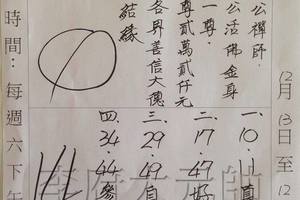 公禪師
公活佛金身
一尊
尊貳萬貳仟元
各界善信大德
結緣
時間：每週六下午
12月13日至12
一.10.11真
二.17.47好
三.29.49自
四.34.44參